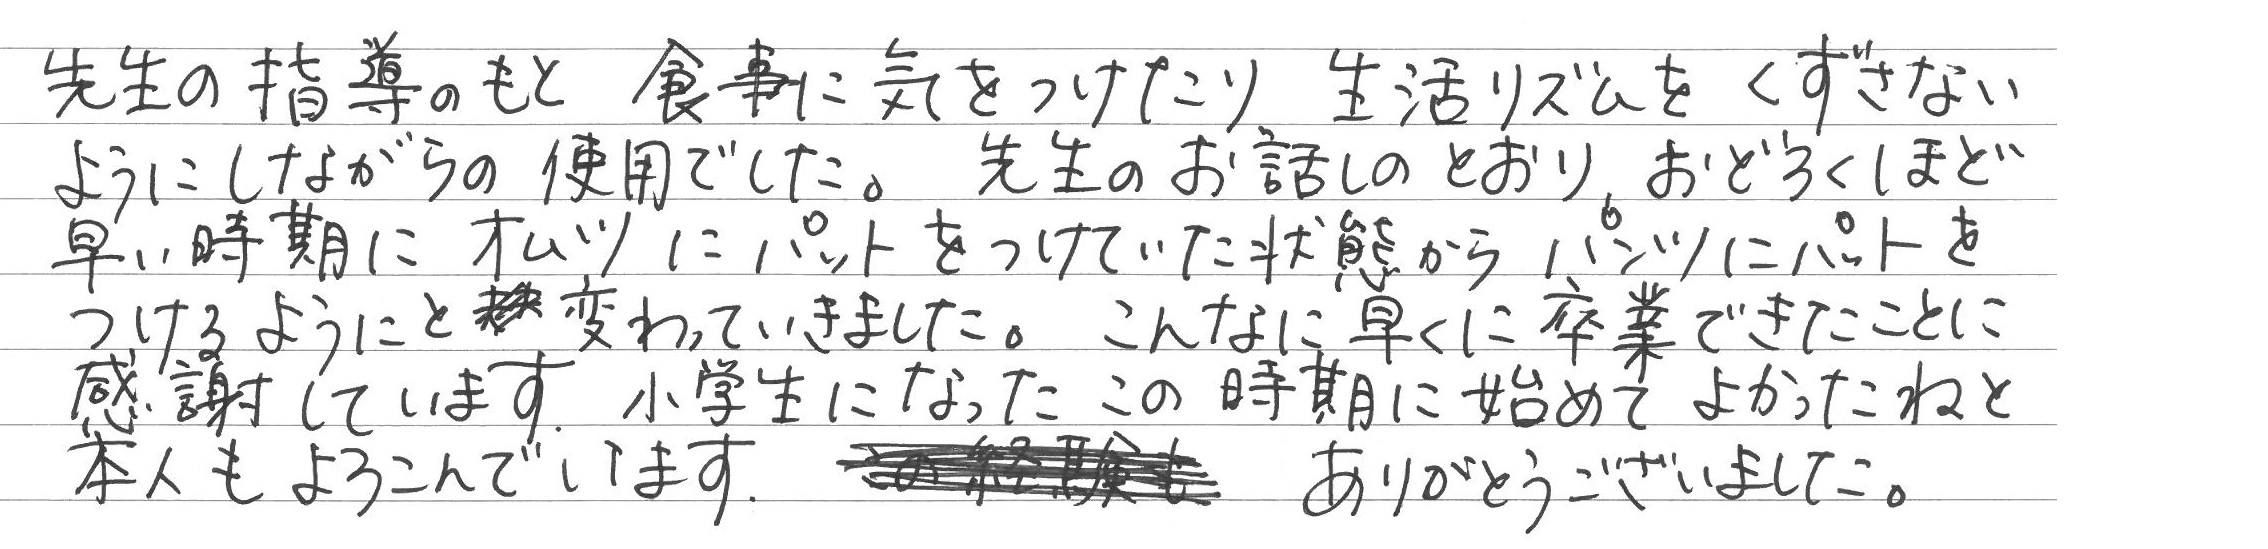 先生の指導のもと 食事に気をつけたり 生活リズムを くずさない
ようにしながらの 使用でした。 先生のお話しのとおり、おどろくほど
早い時期に オムツにパットをつけていた状態から パンツにパットを
つけるようにと変わっていきました。 こんなに早くに卒業できたことに
感謝しています. 小学生になった この時期に始めて よかったねと
本人もよろこんでいます. ありがとうございました。